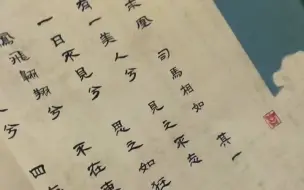 凰 司馬相如 其一
有一美人兮 見之不忘
一日不見兮 思之如狂
鳳飛翱翔兮 不在東
兮 四